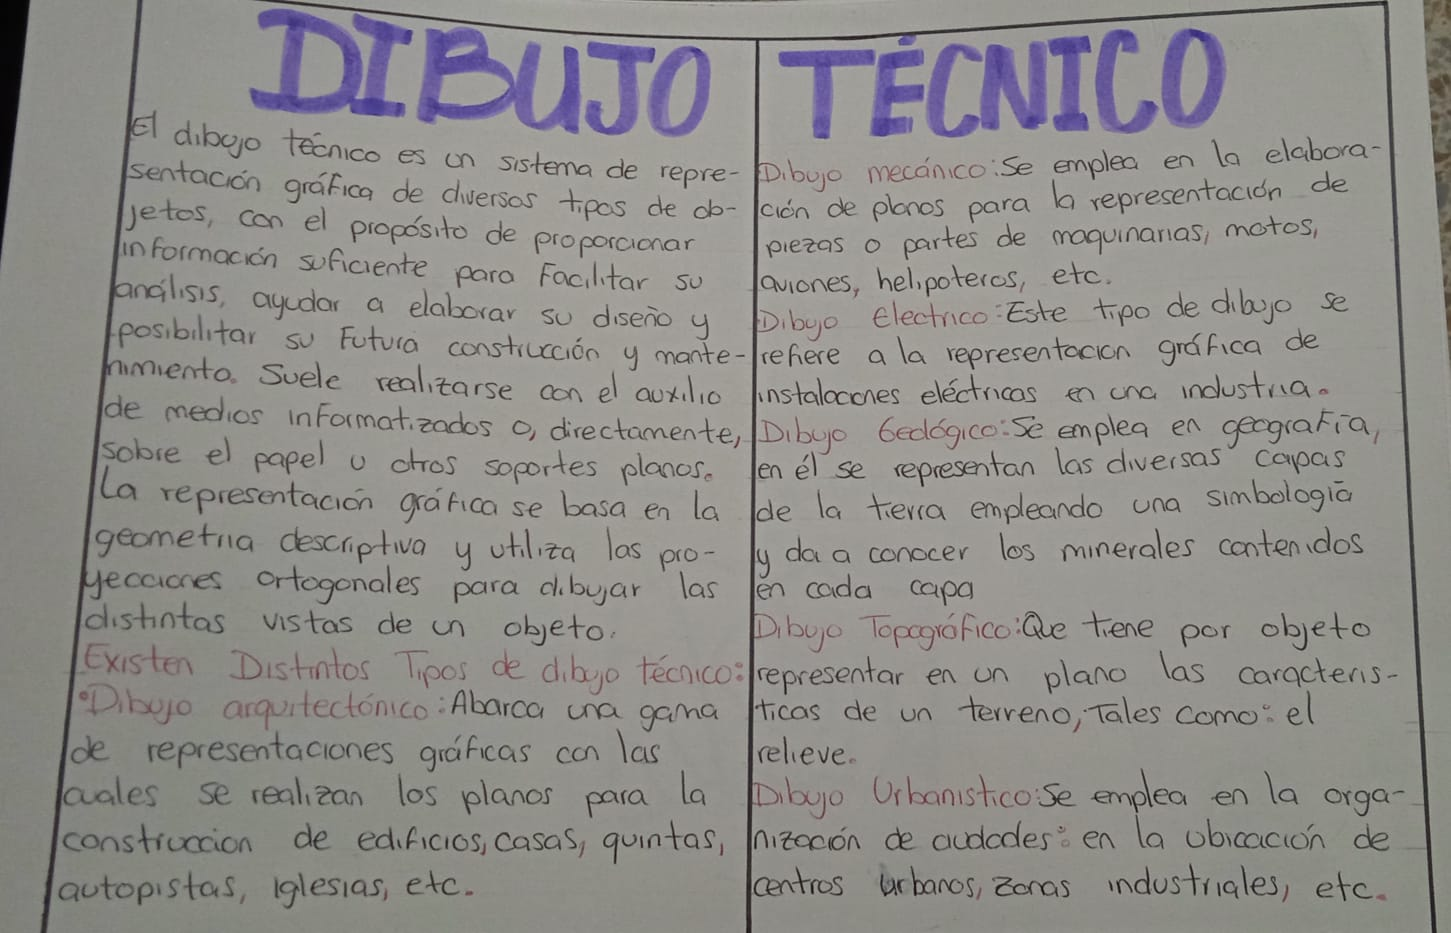 DIBUJO TÉCNICO
El dibujo técnico es un sistema de repre-
sentación gráfica de diversos tipos de ob-
jetos, con el propósito de proporcionar
información suficiente para Facilitar su
análisis, ayudar a elaborar su diseño y
posibilitar su Futura construcción y mante-
nimiento. Suele realizarse con el auxilio
de medios informatizados o, directamente,
sobre el papel u otros soportes planos.
La representación gráfica se basa en la
geometria descriptiva y utiliza las pro-
yecciones ortogonales para dibujar las
distintas vistas de un objeto.
Existen Distintos Tipos de dibujo técnico:
•Dibujo arquitectónico: Abarca una gama
de representaciones gráficas con las
cuales se realizan los planos para la
construccion de edificios, casas, quintas,
autopistas, iglesias, etc.
Dibujo mecánico: Se emplea en la elabora-
ción de planos para la representación de
piezas o partes de maquinarias, motos,
aviones, helipoteros, etc.
Dibujo Electrico: Este tipo de dibujo se
refiere a la representacion gráfica de
instalaciones eléctricas en una industria.
Dibujo Geológico: Se emplea en geografía,
en él se representan las diversas capas
de la tierra empleando una simbología
y da a conocer los minerales contenidos
en cada capa
Dibujo Topográfico: Que tiene por objeto
representar en un plano las caracteris-
ticas de un terreno, Tales como: el
relieve.
Dibujo Urbanistico: Se emplea en la orga-
nización de ciudades: en la ubicación de
centros urbanos, zonas industriales, etc.